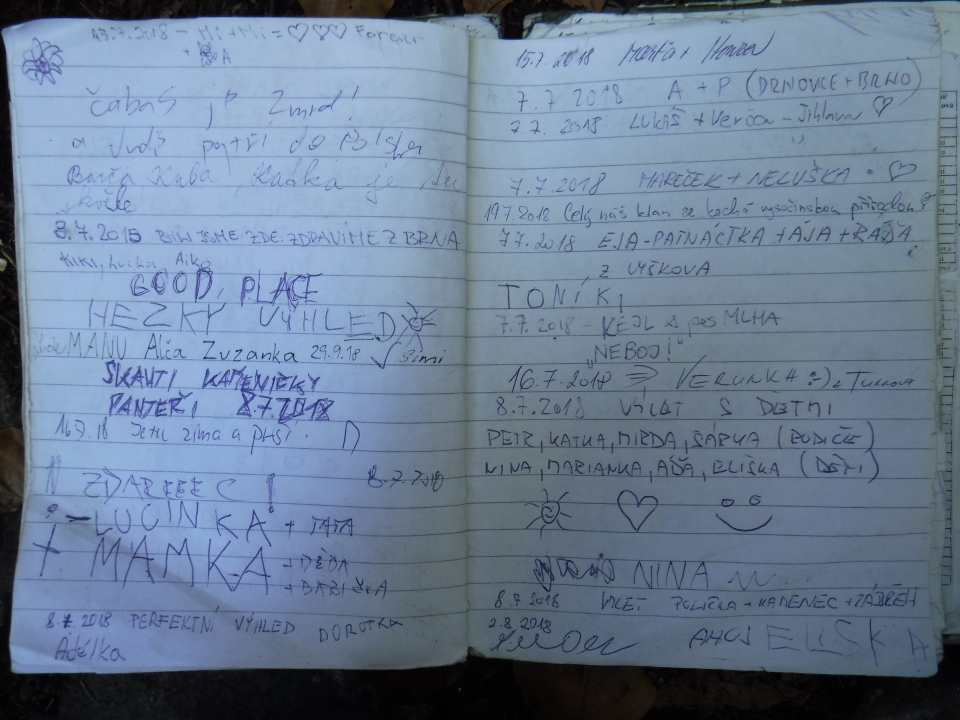 13.7.2018 - Mi + Mi = Forever
+ A
čabas je zmrd!
a patří do
Bára, Kuba, Kačka je
8.7.2015 BILI JSME ZDE. ZDRAVÍME Z BRNA
KIKI, Aik
GOOD PLACE
HEZKÝ VÝHLED
MANU Alča Zuzanka 29.9.18 Simi
SKAUTI KAMENIČKY
PANTEŘI 8.7.2018
16.7.18 Je tu zima a prší.
ZDAREEEC! 8.7.2018
LUCINKA + TATA
+ MAMKA + DĚDA
+ BABIČKA
8.7 2018 PERFEKTNÍ VÝHLED DOROTKA
Adélka
15.7.2018 Marta + Honza
7.7 2018 A + P (DRNOVCE + BRNO)
7.7. 2018 LUKÁŠ + Verča - Jihlava
7.7.2018 MAREČEK + NELUŠKA =
19.7.2018 Celý náš klan se kochá vysočinskou přírodou
7.7.2018 EJA-PATNÁCTKA + ÁJA + RÁĎA
Z VYŠKOVA
TONÍK,
7.7.2018 - KEJL A pes MLHA
"NEBOJ!"
16.7.2018 => VERUNKA :-) z Turnova
8.7.2018 VÝLET S DĚTMI
PETR, KATKA, MIRDA, ŠÁRKA (RODIČE)
NINA, MARIANKA, ÁĎA, ELIŠKA (DĚTI)
NINA
8.7.2018 VÝLET POLIČKA + KAMENEC + ZÁBŘEH
2.8.2018
AHOJ ELISKA